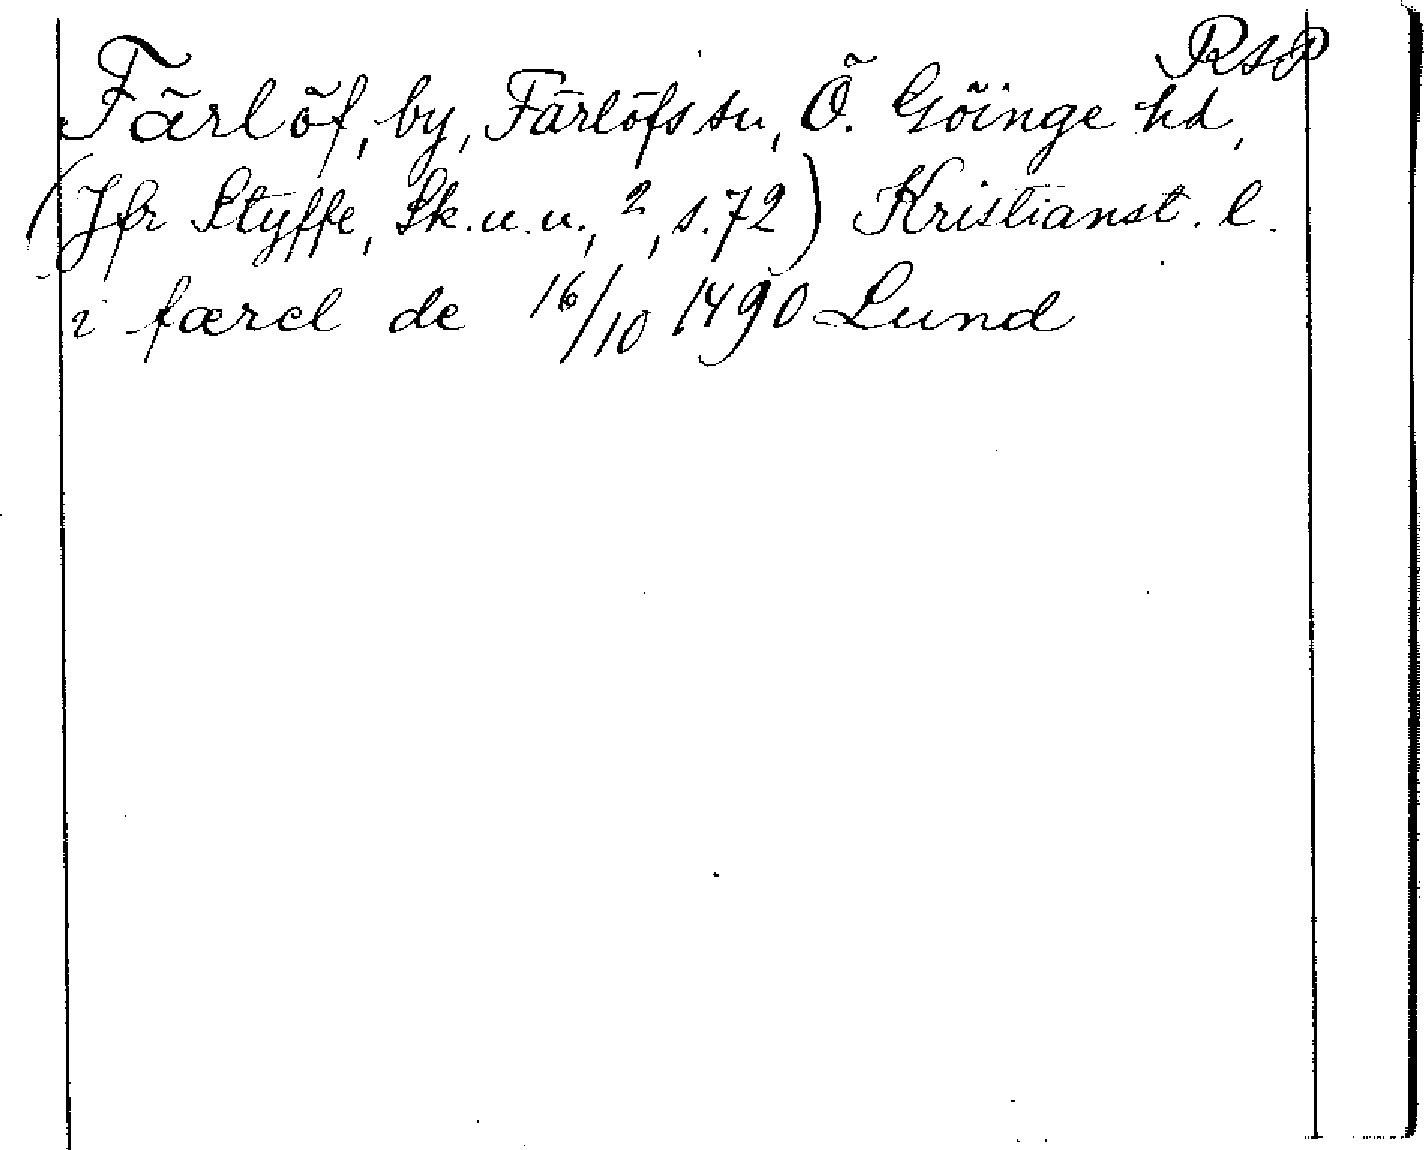 RAP
Färlöf, by, Färlöfs sn, Ö. Göinge hd,
(Jfr Styffe, Sk.u.u., 2, s.72) Kristianst. l.
i færel de 16/10 1490 Lund